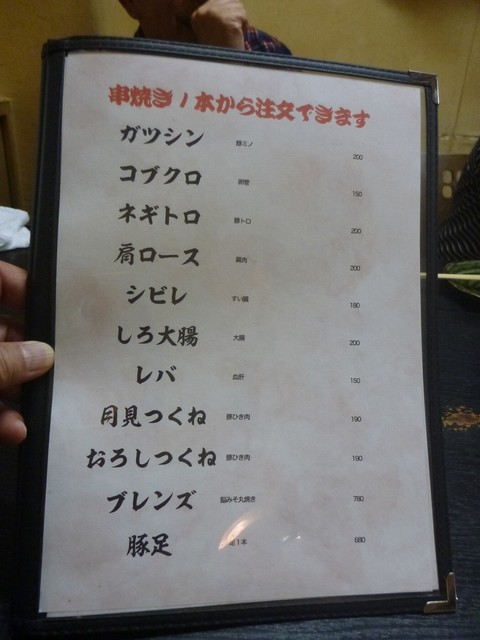 串焼き1本から注文できます
ガツシン 豚ミノ 200
コブクロ 卵管 150
ネギトロ 豚トロ 200
肩ロース 肩肉 200
シビレ すい臓 180
しろ大腸 大腸 200
レバ 血肝 150
月見つくね 豚ひき肉 190
おろしつくね 豚ひき肉 190
ブレンズ 脳みそ丸焼き 780
豚足 足1本 680